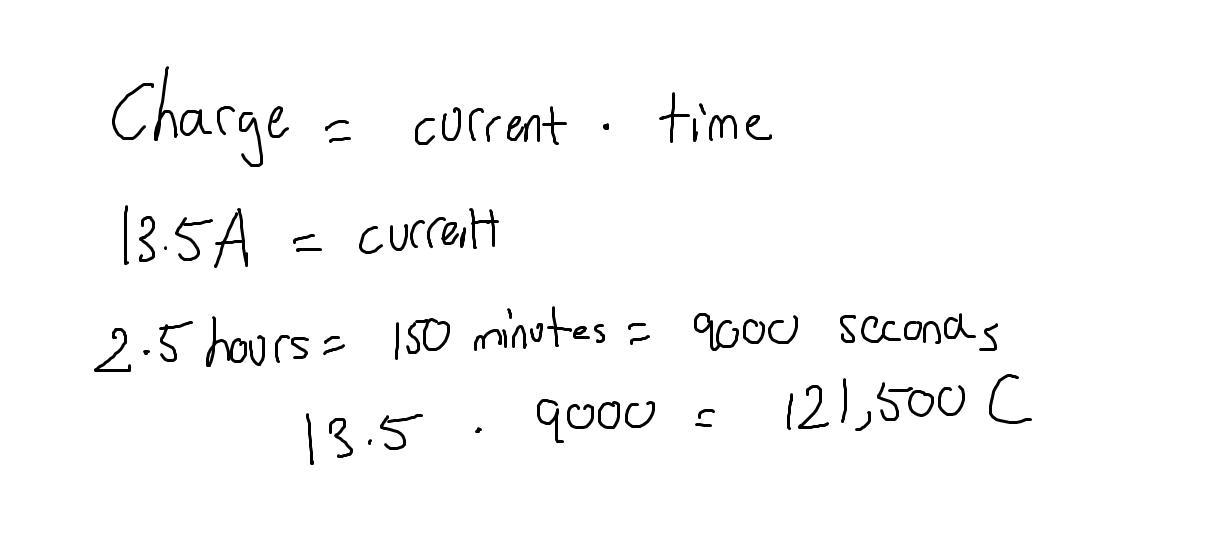 Charge = current · time
13.5A = current
2.5 hours = 150 minutes = 9000 seconds
13.5 · 9000 = 121,500 C